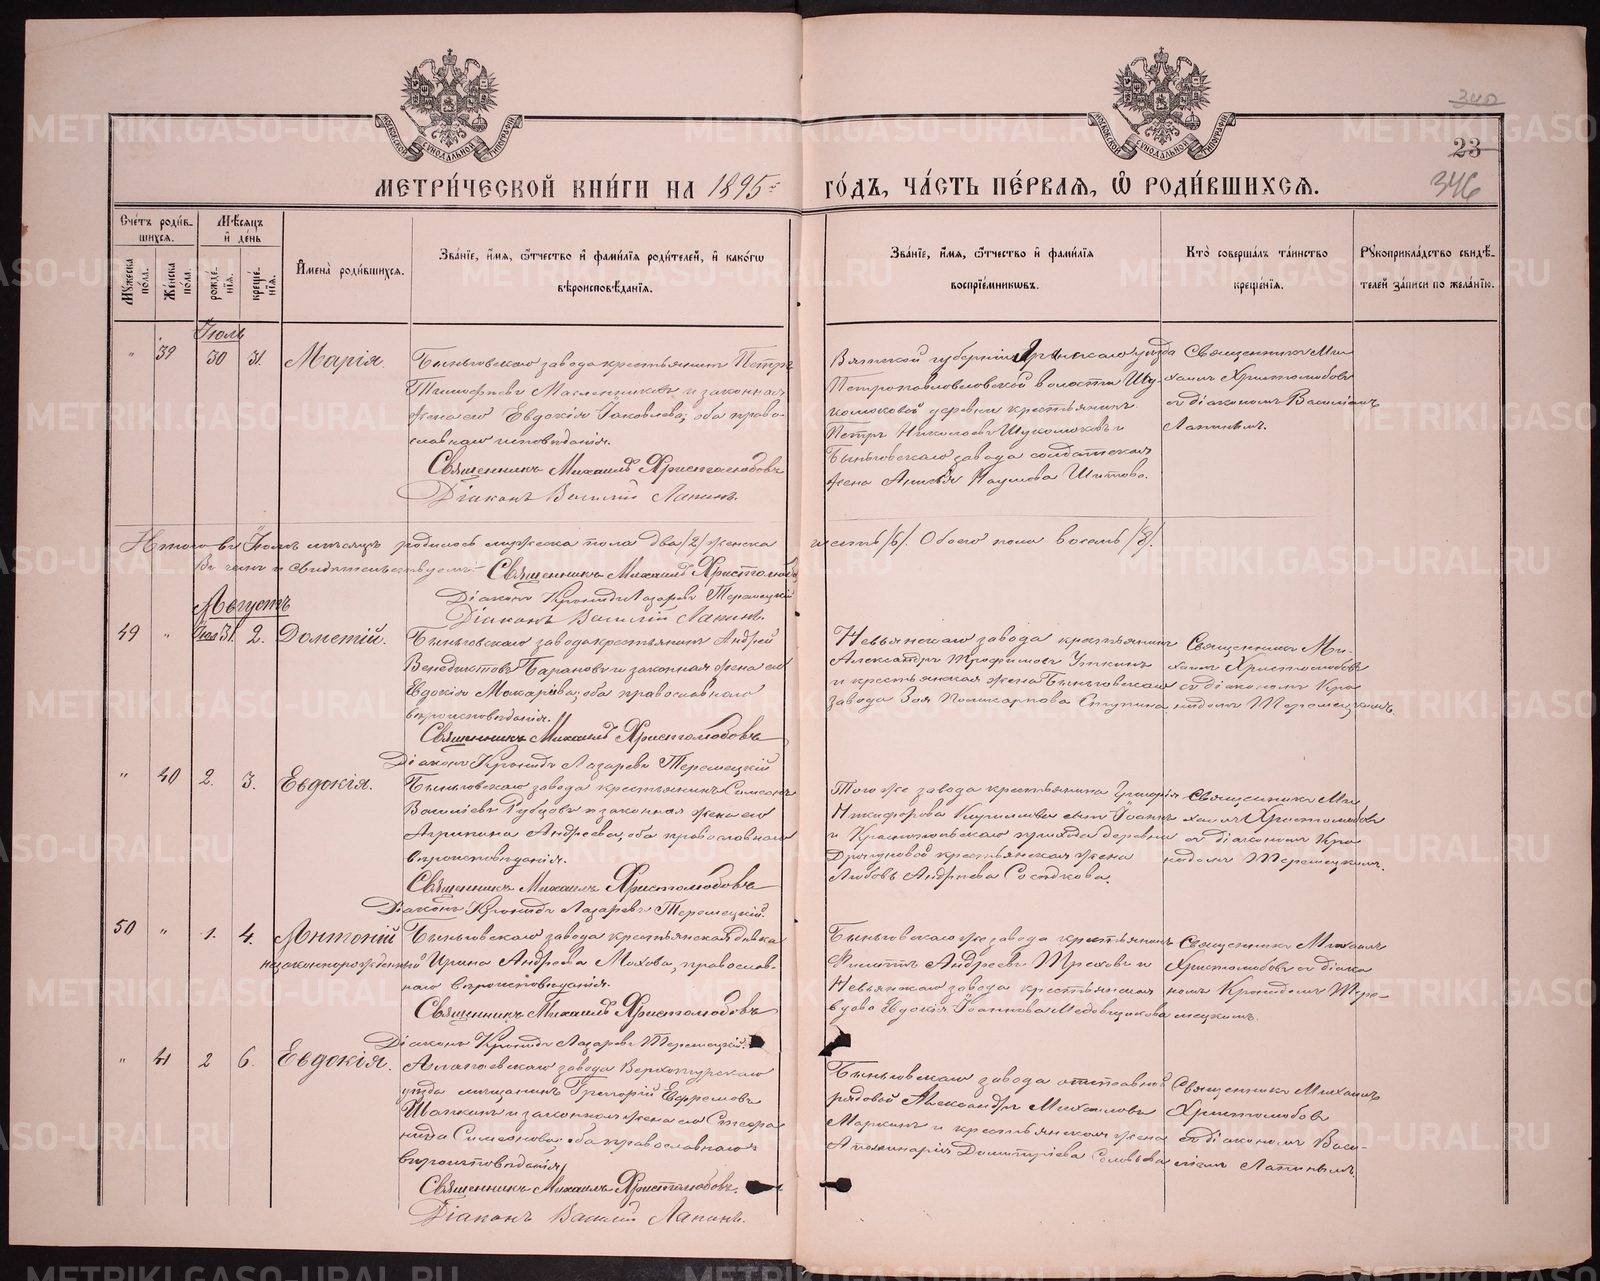 340
23
346
МОСКОВСКОЙ СѴНОДАЛЬНОЙ ТИПОГРАФІИ
МОСКОВСКОЙ СѴНОДАЛЬНОЙ ТИПОГРАФІИ
МЕТРИ́ЧЕСКОЙ КНИ́ГИ НА 1895 ГО́ДЪ, ЧА́СТЬ ПЕ́РВАЯ, Ѽ РОДИ́ВШИХСЯ.
Сче́тъ роди́вшихся.
Мꙋ́жеска по́ла.
Же́нска по́ла.
Мѣ́сяцъ и҆ де́нь
рожде́нїя.
креще́нїя.
И҆мена̀ роди́вшихся.
Зва́нїе, и҆́мя, ѻ҆́тчество и҆ фами́лїя роди́телей, и҆ какѡ́гѡ
вѣроисповѣ́данїя.
Зва́нїе, и҆́мя, ѻ҆́тчество и҆ фами́лїя
воспрїе́мникѡвъ.
Кто̀ соверша́лъ та́инство
креще́нїя.
Рꙋкоприкла́дство свидѣ́-
телей за́писи по жела́нїю.
Іюль
" 39 30 31. Марія.
Быньговскаго завода крестьянинъ Петръ
Тимофеевъ Масленниковъ и законная
жена его Евдокія Іаковлева, оба право-
славнаго исповѣданія.
Священникъ Михаилъ Христолюбовъ
Діаконъ Василій Лапинъ.
Вятской губерніи уѣзда
Петропавловской волости Шу-
комоковой деревни крестьянинъ
Петръ Николаевъ Шукомоковъ и
Быньговскаго завода солдатская
жена Анисья Наумова Шитова.
Священникъ Ми-
хаилъ Христолюбовъ
съ діакономъ Василіемъ
Лапинымъ.
Итого въ Іюлѣ мѣсяцѣ родилось мужеска пола два /2/ женска
шесть /6/ Обоего пола восемь /8/.
Въ чемъ и свидѣтельствуемъ Священникъ Михаилъ Христолюбовъ
Діаконъ Кронидъ Лазаревъ Теремецкій
Діаконъ Василій Лапинъ.
Августъ
49 " Іюл 31. 2. Дометій.
Быньговскаго завода крестьянинъ Андрей
Венедиктовъ Барановъ и законная жена его
Евдокія Макаріева, оба православнаго
вѣроисповѣданія.
Священникъ Михаилъ Христолюбовъ
Діаконъ Кронидъ Лазаревъ Теремецкій
Невьянскаго завода крестьянинъ
Александръ Трифимовъ Уткинъ
и крестьянская жена Быньговскаго
завода Зоя Поликарпова Ступина
Священникъ Ми-
хаилъ Христолюбовъ
съ діакономъ Кро
нидомъ Теремецкимъ.
" 40 2. 3. Евдокія.
Быньговскаго завода крестьянинъ Симеонъ
Василіевъ Губцовъ и законная жена его
Агрипина Андреева, оба православнаго
вѣроисповѣданія.
Священникъ Михаилъ Христолюбовъ
Діаконъ Кронидъ Лазаревъ Теремецкій.
Того же завода крестьянина Григорія
Никифорова Кирилова сынъ Іоаннъ
и прихода деревни
крестьянская жена
Любовь Андреева Сосѣдкова.
Священникъ Ми
хаилъ Христолюбовъ
съ діакономъ Кро
нидомъ Теремецкимъ.
50 " 1. 4. Антоній
незаконнорожденный
Быньговскаго завода крестьянская дѣвка
Ирина Андреева Махова, православ-
наго вѣроисповѣданія.
Священникъ Михаилъ Христолюбовъ
Діаконъ Кронидъ Лазаревъ Теремецкій.
Быньговскаго же завода крестьянинъ
Филиппъ Андреевъ Треховъ и
Невьянскаго завода крестьянская
вдова Евдокія Іоаннова Медовщикова
Священникъ Михаилъ
Христолюбовъ съ діако
номъ Кронидомъ Тере-
мецкимъ.
" 41 2 6. Евдокія.
Алапаевскаго завода Верхотурскаго
уѣзда мѣщанинъ Григорій Ефремовъ
Шапкинъ и законная жена его Стефа
нида Симеонова, оба православнаго
вѣроисповѣданія,
Священникъ Михаилъ Христолюбовъ.
Діаконъ Василій Лапинъ.
Быньговскаго завода отставной
рядовой Александръ Михаиловъ
Маркинъ и крестьянская жена
Аполинарія Димитріева Соловьева
Священникъ Михаилъ
Христолюбовъ
съ діакономъ Васи-
ліемъ Лапинымъ.
METRIKI.GASO-URAL.RU